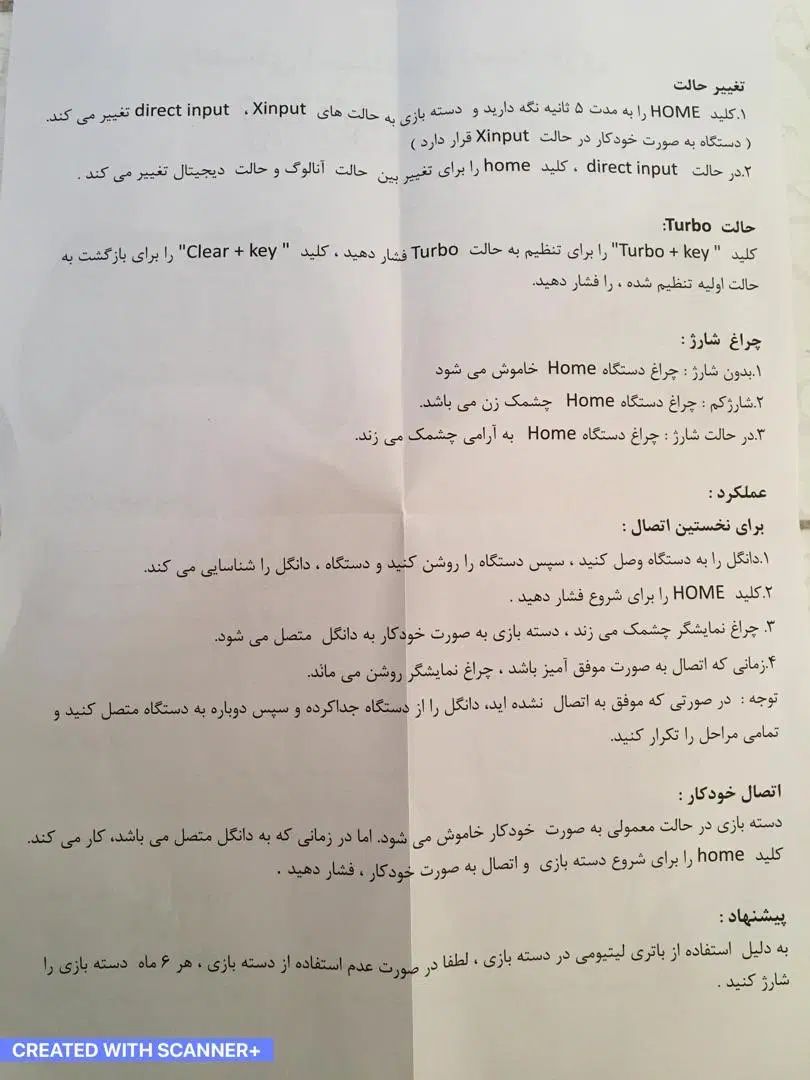 تغییر حالت
۱.کلید HOME را به مدت ۵ ثانیه نگه دارید و دسته بازی به حالت های Xinput ، direct input تغییر می کند.
( دستگاه به صورت خودکار در حالت Xinput قرار دارد )
۲.در حالت direct input ، کلید home را برای تغییر بین حالت آنالوگ و حالت دیجیتال تغییر می کند .
حالت Turbo:
کلید " Turbo + key" را برای تنظیم به حالت Turbo فشار دهید ، کلید " Clear + key" را برای بازگشت به
حالت اولیه تنظیم شده ، را فشار دهید.
چراغ شارژ :
۱.بدون شارژ : چراغ دستگاه Home خاموش می شود
۲.شارژکم : چراغ دستگاه Home چشمک زن می باشد.
۳.در حالت شارژ : چراغ دستگاه Home به آرامی چشمک می زند.
عملکرد :
برای نخستین اتصال :
۱.دانگل را به دستگاه وصل کنید ، سپس دستگاه را روشن کنید و دستگاه ، دانگل را شناسایی می کند.
۲.کلید HOME را برای شروع فشار دهید .
۳. چراغ نمایشگر چشمک می زند ، دسته بازی به صورت خودکار به دانگل متصل می شود.
۴.زمانی که اتصال به صورت موفق آمیز باشد ، چراغ نمایشگر روشن می ماند.
توجه : در صورتی که موفق به اتصال نشده اید، دانگل را از دستگاه جداکرده و سپس دوباره به دستگاه متصل کنید و
تمامی مراحل را تکرار کنید.
اتصال خودکار :
دسته بازی در حالت معمولی به صورت خودکار خاموش می شود. اما در زمانی که به دانگل متصل می باشد، کار می کند.
کلید home را برای شروع دسته بازی و اتصال به صورت خودکار ، فشار دهید .
پیشنهاد :
به دلیل استفاده از باتری لیتیومی در دسته بازی ، لطفا در صورت عدم استفاده از دسته بازی ، هر ۶ ماه دسته بازی را
شارژ کنید .
CREATED WITH SCANNER+